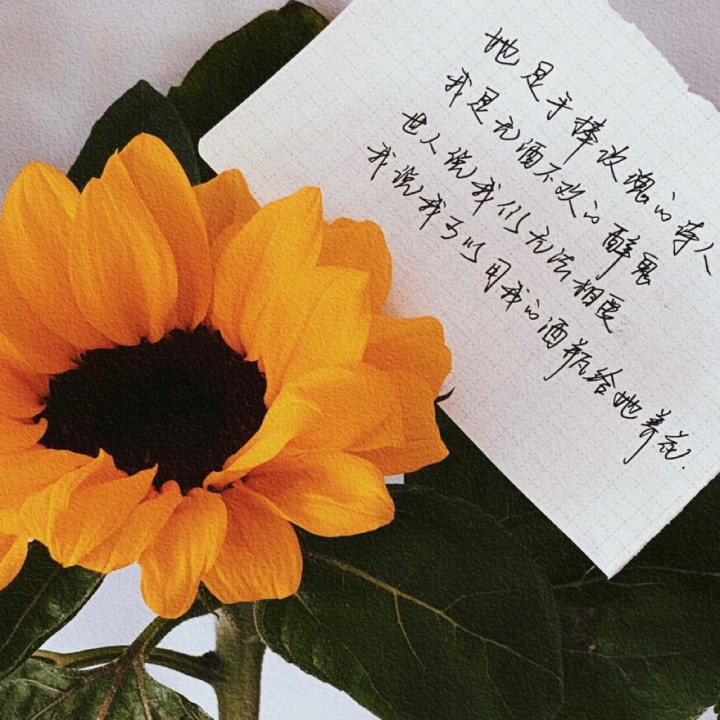 她是手捧玫瑰的诗人
我是无酒不欢的醉鬼
世人说我们无法相爱
我说我可以用我的酒瓶给她养花.